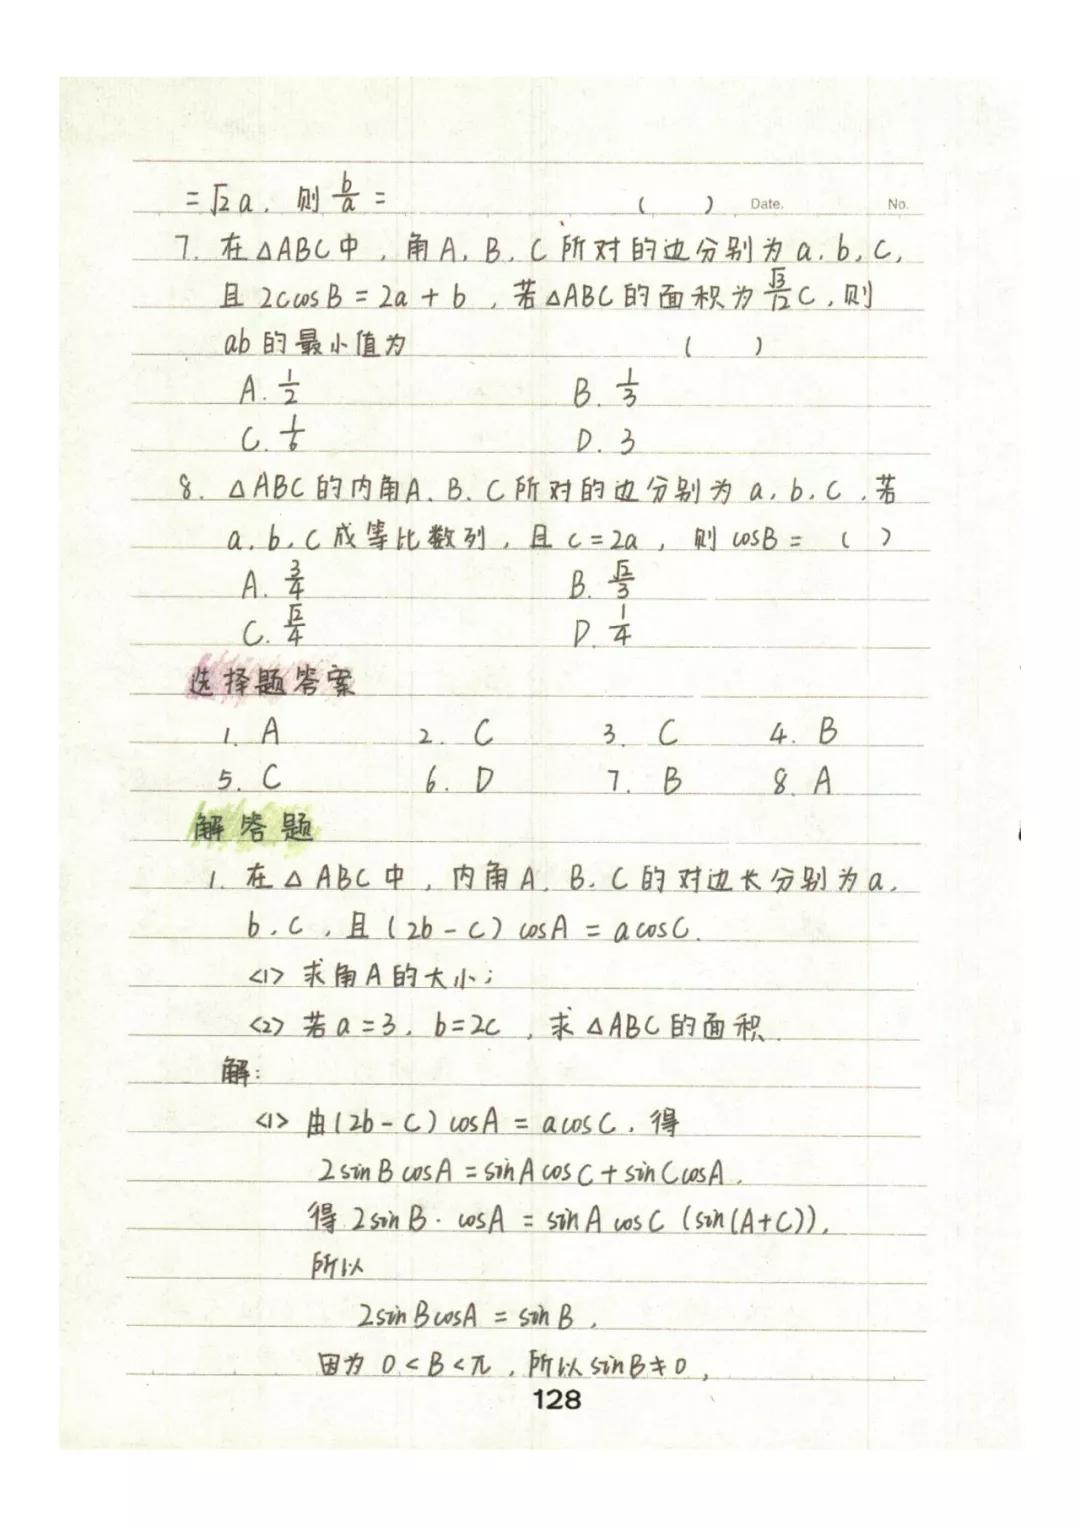 =√2a. 则 b/a = ( ) Date. No.
7. 在△ABC中, 角A, B, C所对的边分别为a, b, c,
且2ccosB=2a+b, 若△ABC的面积为√3/12c, 则
ab的最小值为 ( )
A. 1/2 B. 1/3
C. 1/6 D. 3
8. △ABC的内角A. B. C所对的边分别为a, b, c. 若
a, b, c成等比数列, 且c=2a, 则cosB= ( )
A. 3/4 B. √2/3
C. √2/4 D. 1/4
选择题答案
1. A 2. C 3. C 4. B
5. C 6. D 7. B 8. A
解答题
1. 在△ABC中, 内角A. B. C的对边长分别为a.
b, c, 且(2b-c)cosA=acosC.
<1> 求角A的大小;
<2> 若a=3, b=2c, 求△ABC的面积.
解:
<1> 由(2b-c)cosA=acosC, 得
2sinBcosA=sinAcosC+sinCcosA,
得2sinB·cosA=sinAcosC(sin(A+C)),
所以
2sinBcosA=sinB,
因为0<B<π, 所以sinB≠0,
128